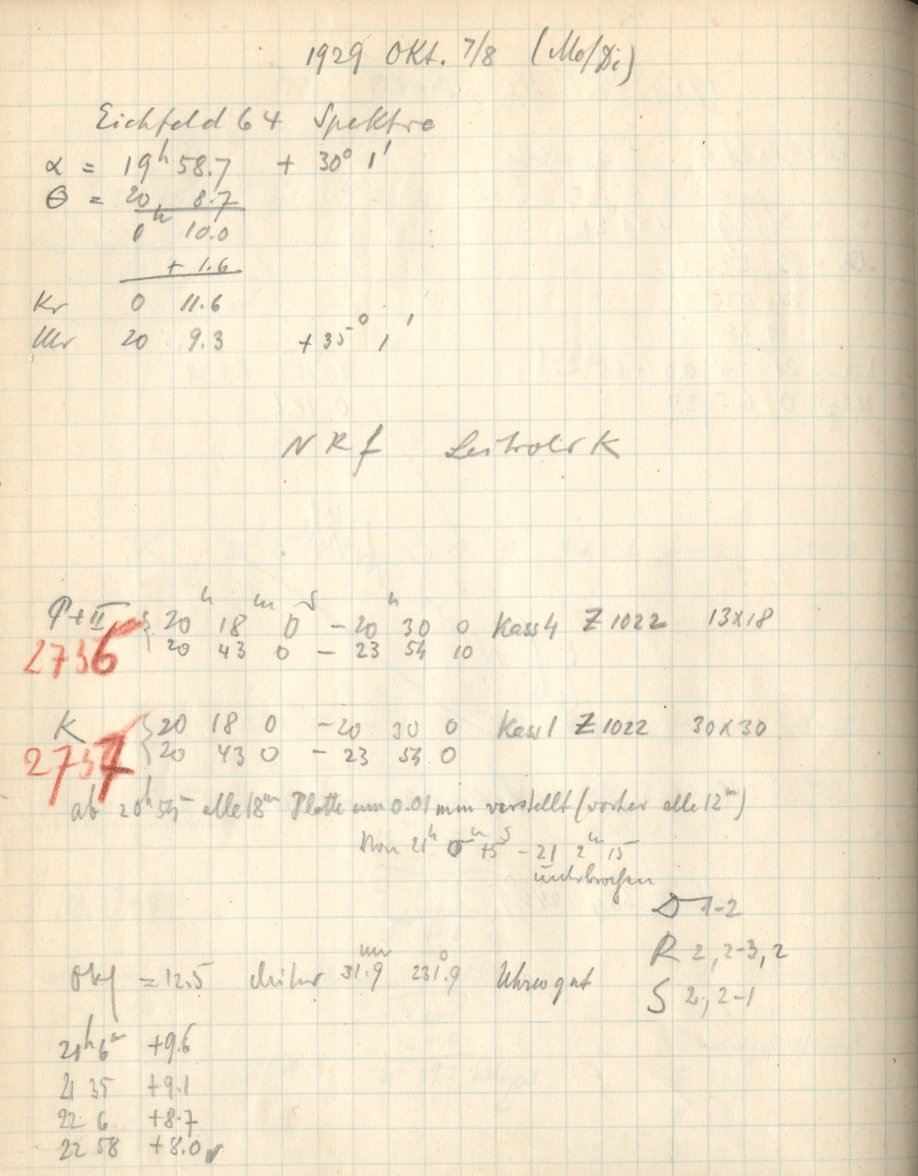 1929 Okt. 7/8 (Mo/Di)
Eichfeld 64 Spektre
α = 19h 58.7 + 30° 1'
θ = 20 8.7
0h 10.0
+ 1.6
Kr 0 11.6
Uhr 20 9.3 + 35° 1'
NRf Leitrohr K
P+II { 20h 18m 0s - 20h 30 0 Kass 4 Z 1022 13x18
2736 20 43 0 - 23 54 10
K { 20 18 0 - 20 30 0 Kass 1 Z 1022 30x30
2737 20 43 0 - 23 54 0
ab 20h 54m alle 18m Platte um 0.01 mm verstellt (vorher alle 12m)
Von 21h 0m 15s - 21 2m 15
unterbrochen
D 1-2
R 2, 2-3, 2
Obj = 12.5 31.9mm 231°.9 Uhrwo gut
S 2, 2-1
21h 6m +9.6
21 35 +9.1
22 6 +8.7
22 58 +8.0